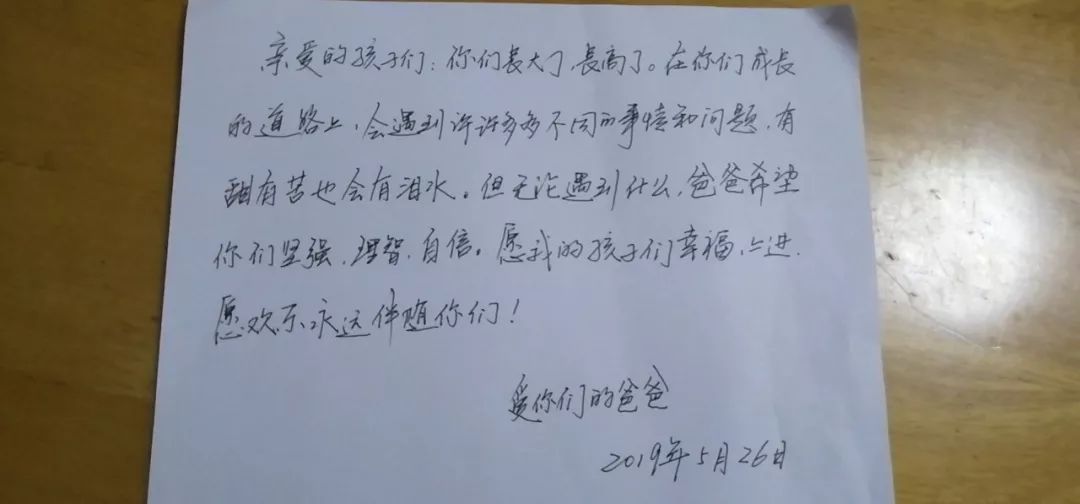 亲爱的孩子们:你们长大了,長高了。在你们成長
的道路上,会遇到许许多多不同的事情和问题,有
甜有苦也会有泪水。但无论遇到什么,爸爸希望
你们坚强、理智、自信。愿我的孩子们幸福、上进、
愿欢乐永远伴随你们!
爱你们的爸爸
2019年5月26日